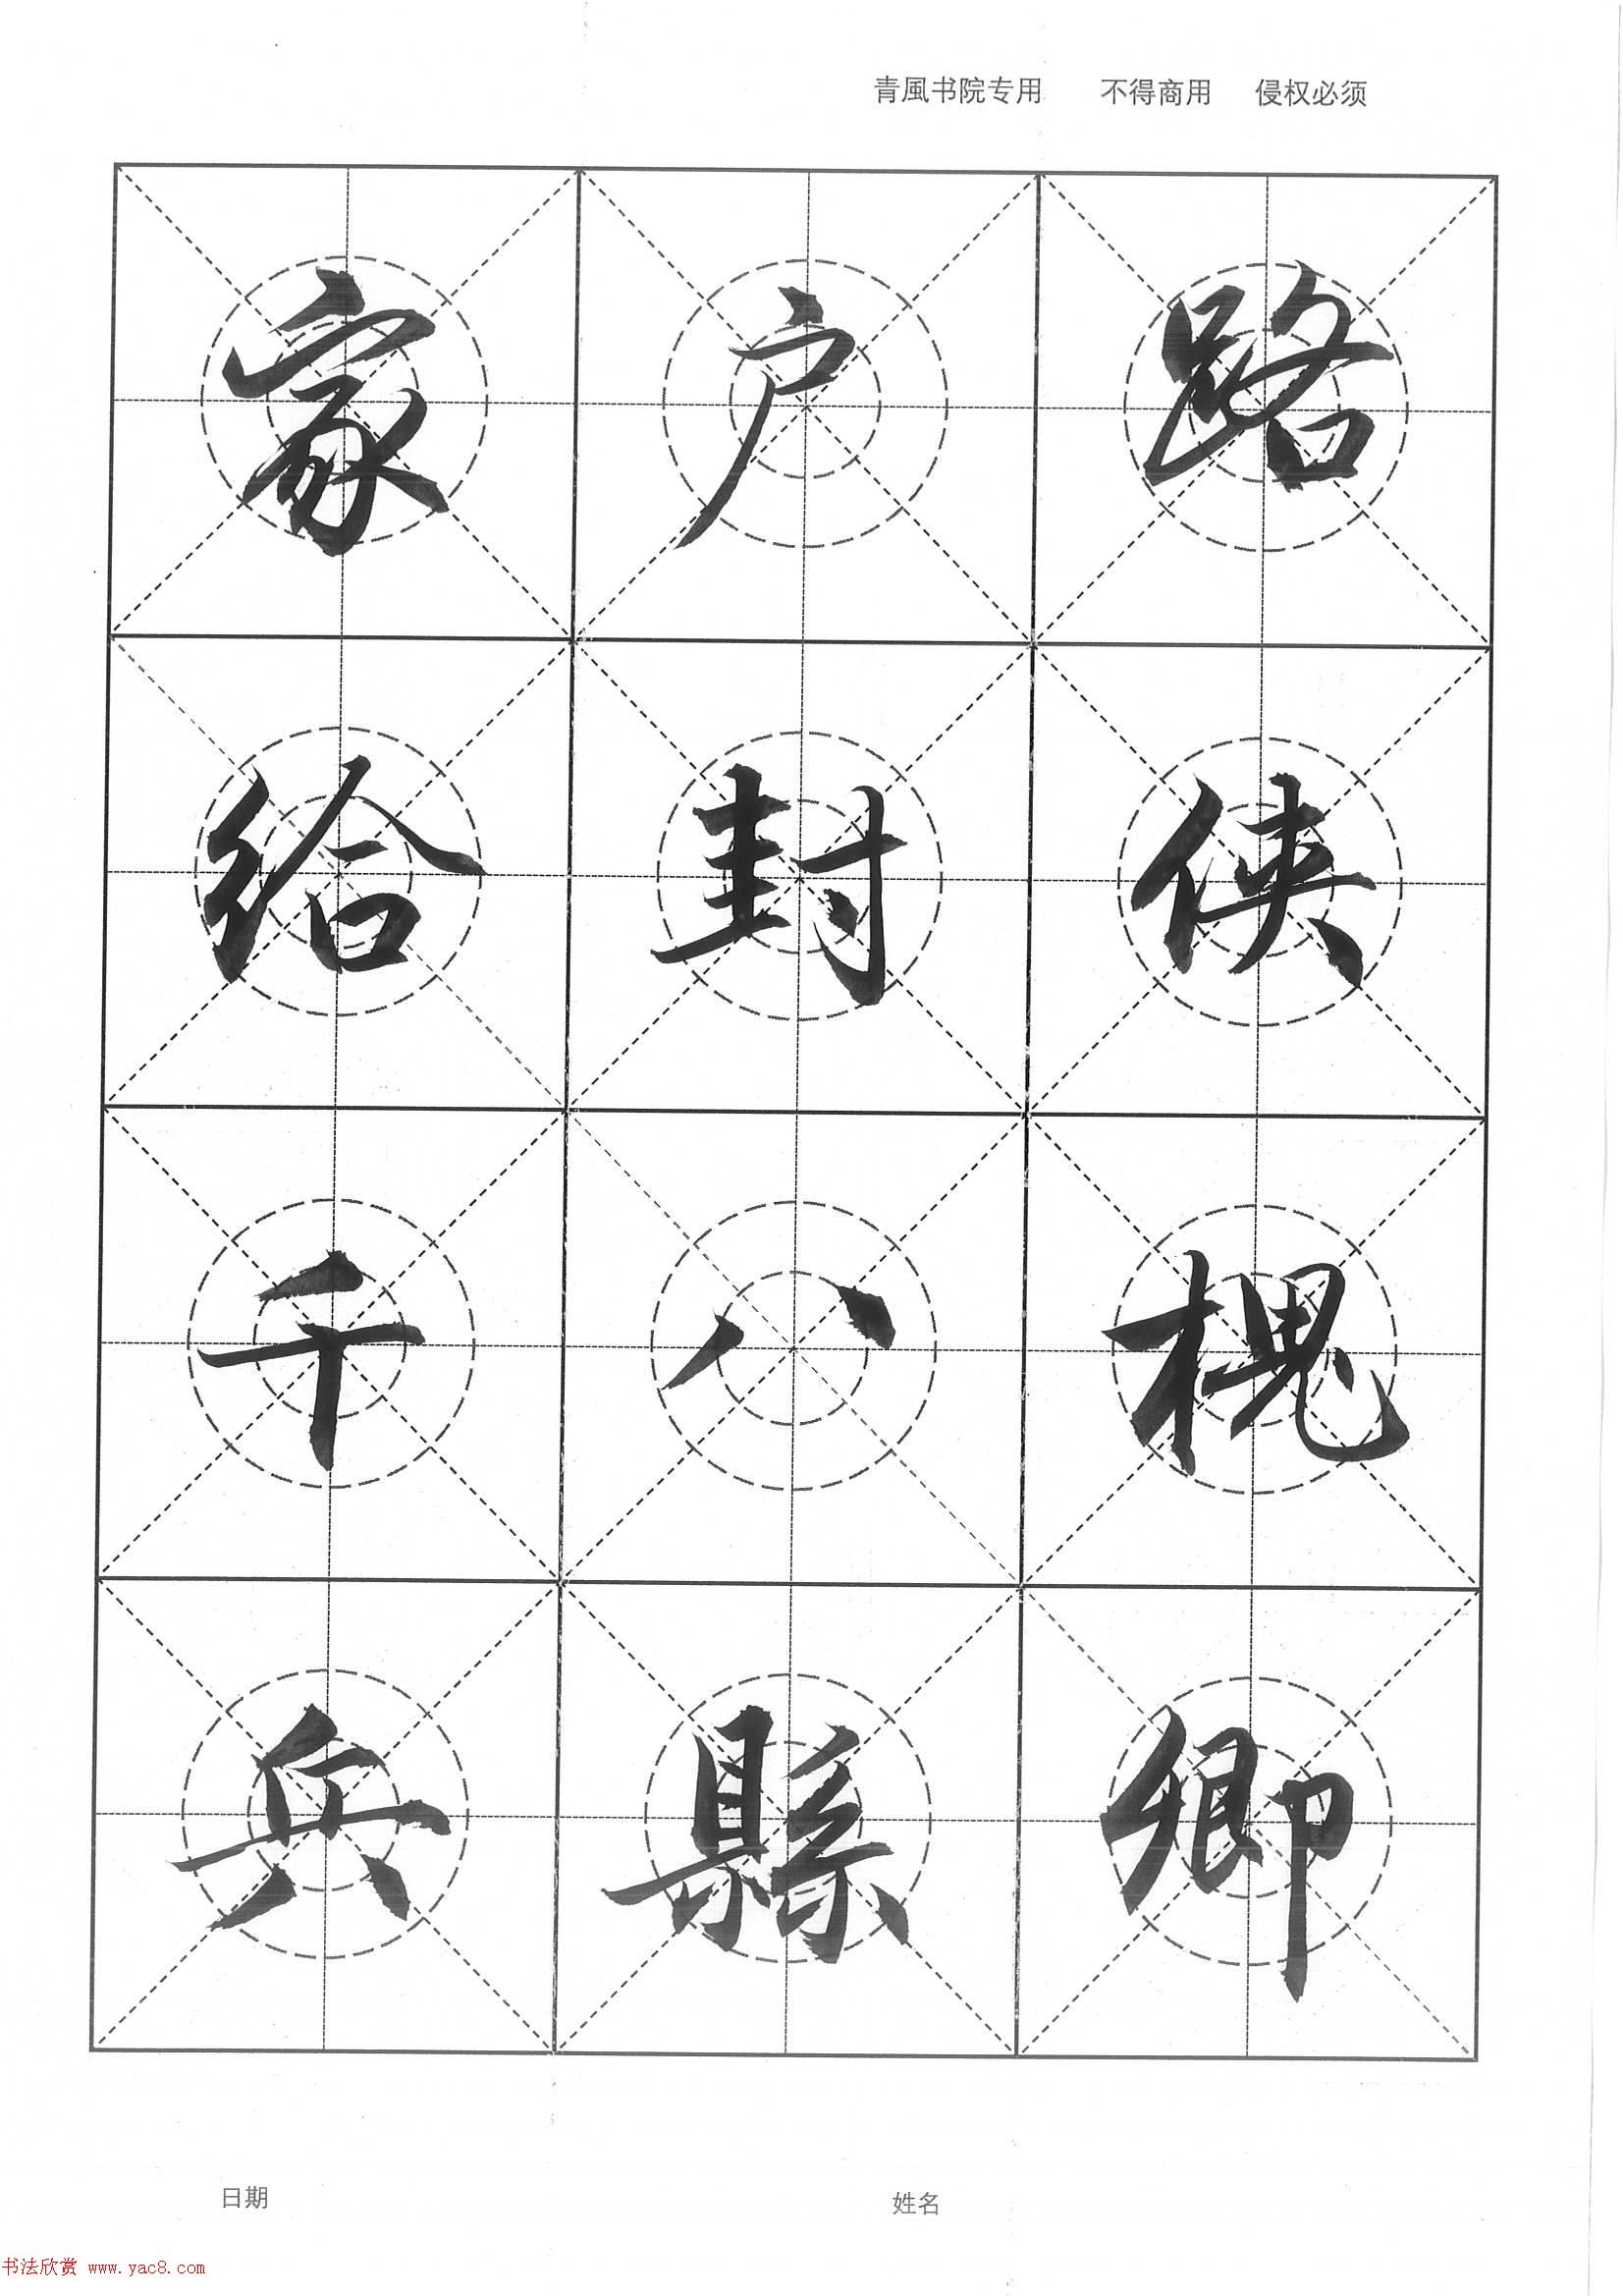 青風书院专用 不得商用 侵权必须
路侠槐卿
户封八縣
家给千兵
日期 姓名
书法欣赏 www.yac8.com